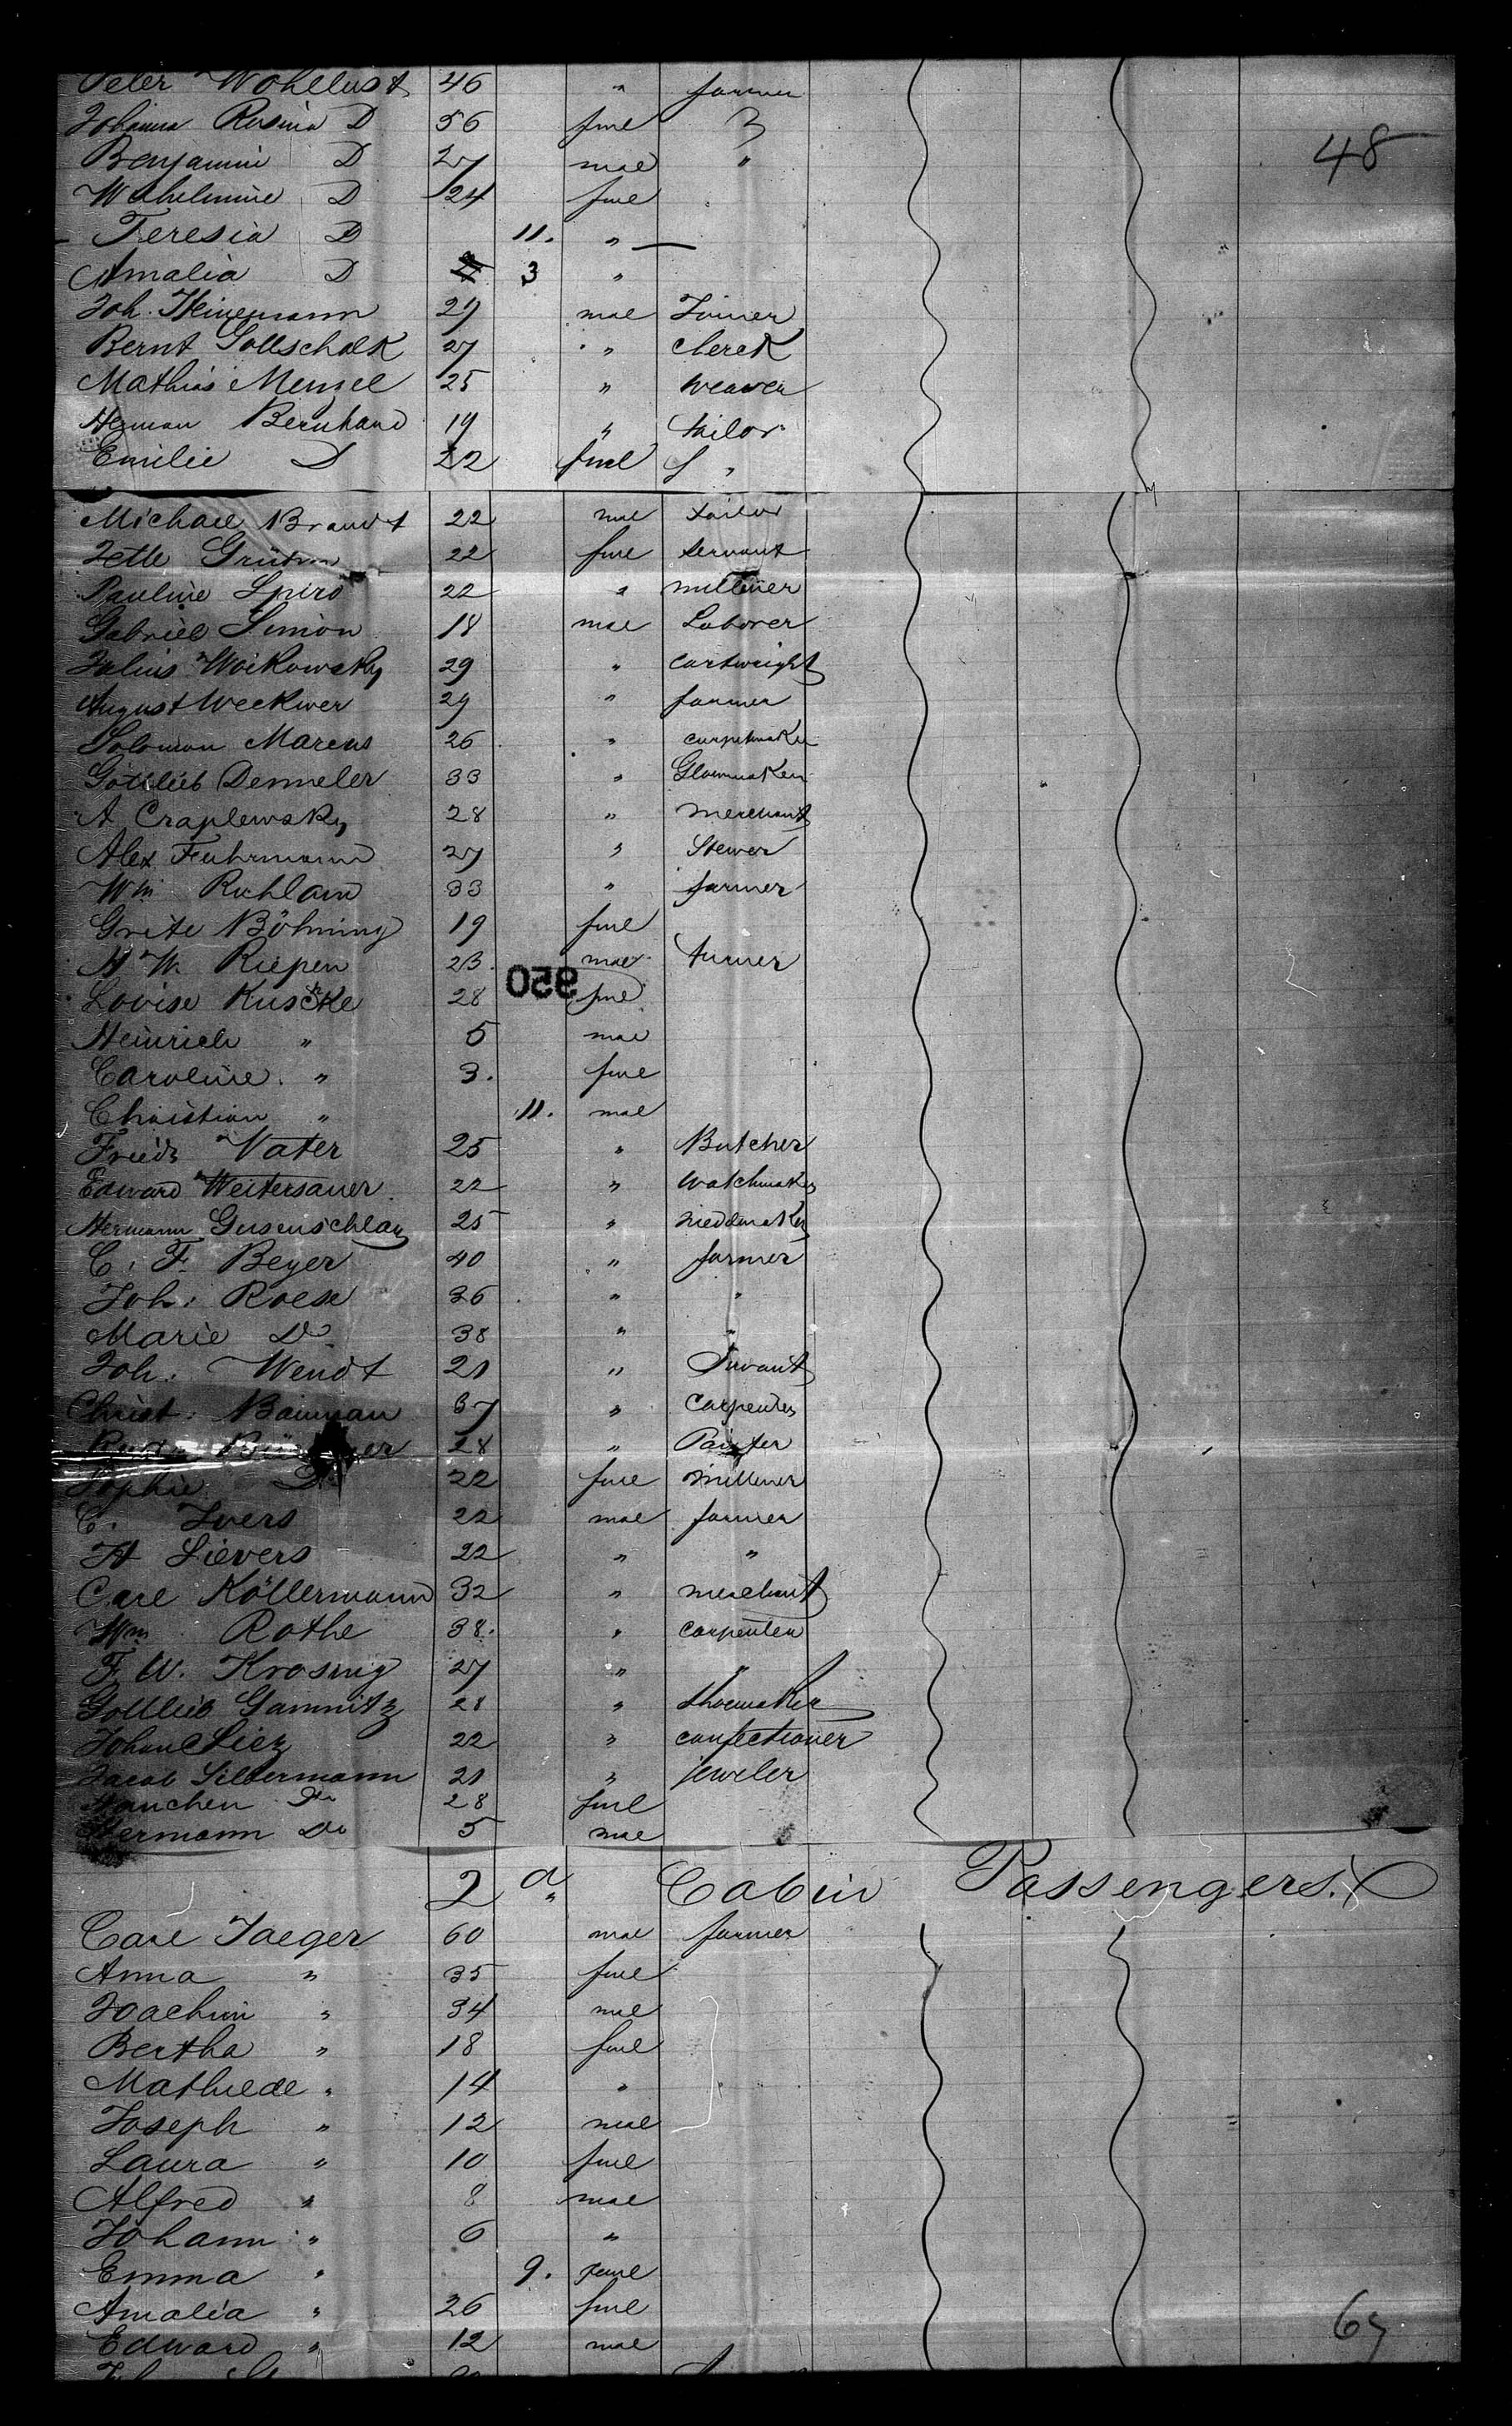 Peter Wohllust 46 " farmer
Johanna Rosina D 56 fml "
Benjamin D 27 mal "
48
Wilhelmine D 24 fml
Teresia D 11. " —
Amalia D 3 "
Joh. Heinemann 29 mal Joiner
Bernt Gottschalk 27 " clerck
Mathias Menzel 25 " weaver
Herman Bernhard 19 " tailor
Emilie D 22 fml "
Michael Brandt 22 mal tailor
Jette 22 fml servant
Pauline Spiro 22 " milliner
Gabriel Simon 18 mal Laborer
Julius Woikowsky 29 " cartwright
August Weckwer 29 " farmer
Solomon Marcus 26 "
Gottlieb Demmeler 33 "
A Craplewsky 28 " merchant
Alex Fuhrmann 27 "
Wm 33 " farmer
Grete Böhming 19 fml
H W. Riepen 23. mal turner
950
Lovise Kuschke 28 fml
Heinrich " 5 mal
Caroline " 3. fml
Christian " 11. mal
Friedr Vater 25 " Butcher
Edward Weitersauer 22 " Watchmaker
Hermann 25 "
C. F. Beyer 40 " farmer
Joh. Roese 36 " "
Marie Do 38 " "
Joh. Wendt 21 " Servant
Christ. Bauman 37 " Carpenter
28 " Painter
Sophie D 22 fml milliner
C. Ivers 22 mal farmer
H Sievers 22 " "
Carl Köllermann 32 " merchant
Wm Rothe 38. " carpenter
F. W. Krosing 27 " "
Gottlieb Gamnitz 28 " Shoemaker
Johann 22 " confectioner
Jacob Silbermann 21 " jeweler
Hanchen Do 28 fml
Hermann Do 5 mal
2 d " Cabin Passengers.
Carl Jaeger 60 mal farmer
Anna " 35 fml
Joachim " 34 mal
Bertha " 18 fml
Mathilde " 14 "
Joseph " 12 mal
Laura " 10 fml
Alfred " 8 mal
Johann " 6 "
Emma " 9. fml
Amalia " 26 fml
Edward " 12 mal